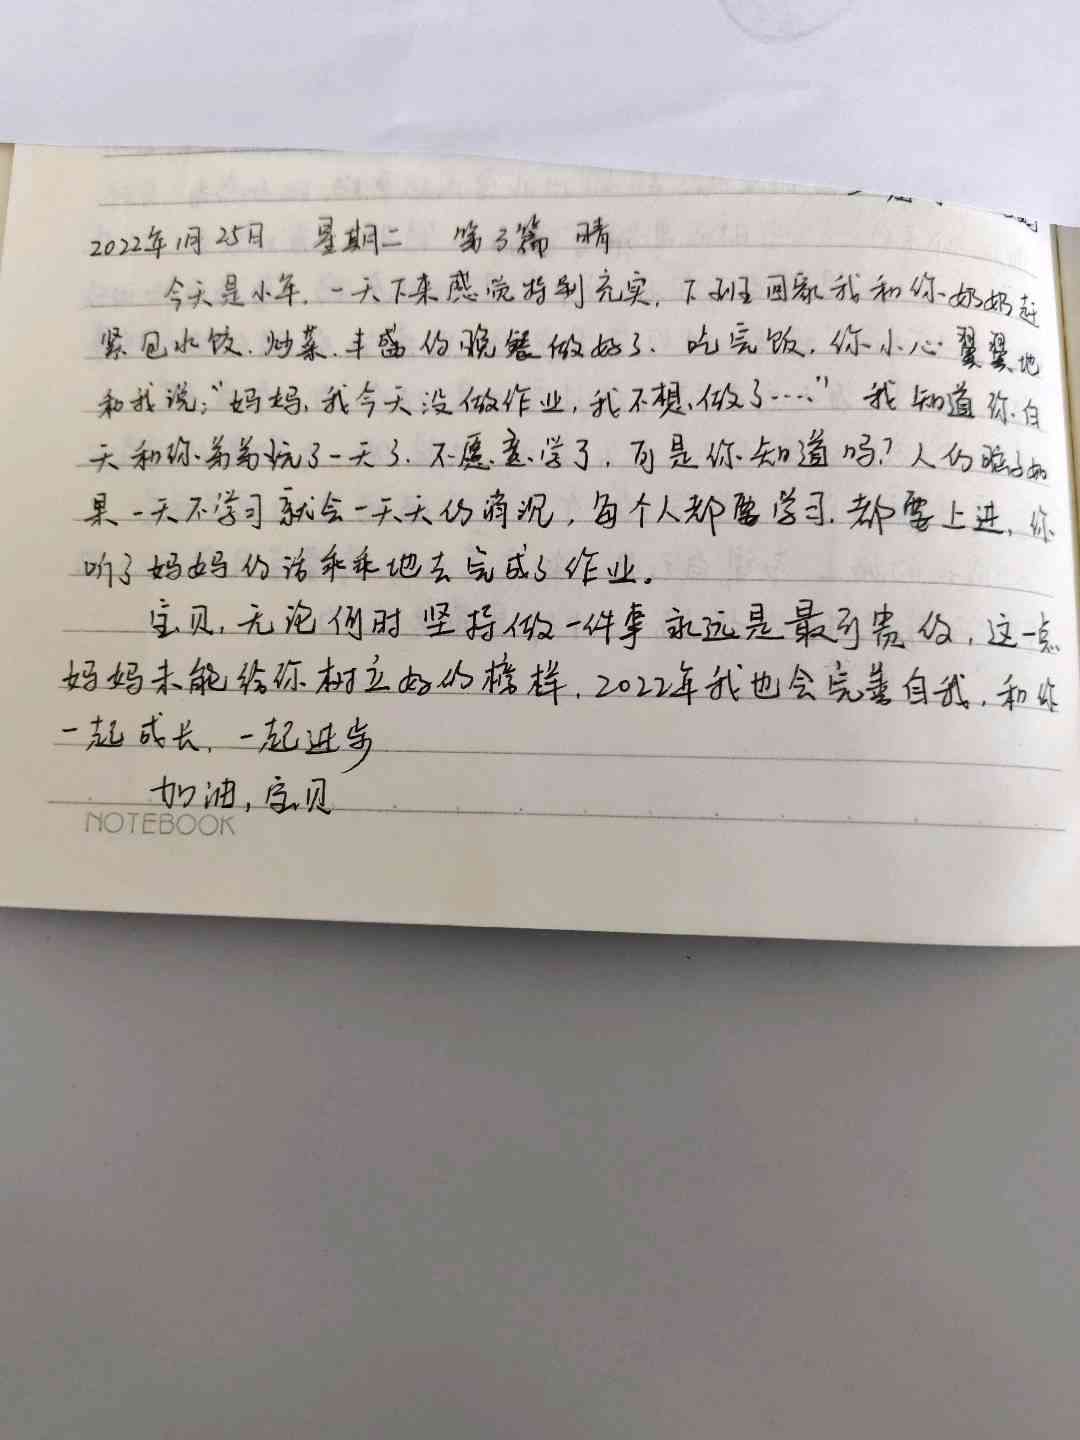 2022年1月25日 星期二 第3篇 晴
今天是小年，一天下来感觉特别充实，下班回家我和你奶奶赶
紧包水饺、炒菜，丰盛的晚餐做好了。吃完饭，你小心翼翼地
和我说：“妈妈，我今天没做作业，我不想做了……” 我知道你白
天和你弟弟玩了一天了，不愿意学了，可是你知道吗？人的脑子如
果一天不学习就会一天天的消沉，每个人都要学习，都要上进，你
听了妈妈的话乖乖地去完成了作业。
宝贝，无论何时坚持做一件事永远是最可贵的，这一点
妈妈未能给你树立好的榜样，2022年我也会完善自我，和你
一起成长，一起进步
加油，宝贝
NOTEBOOK